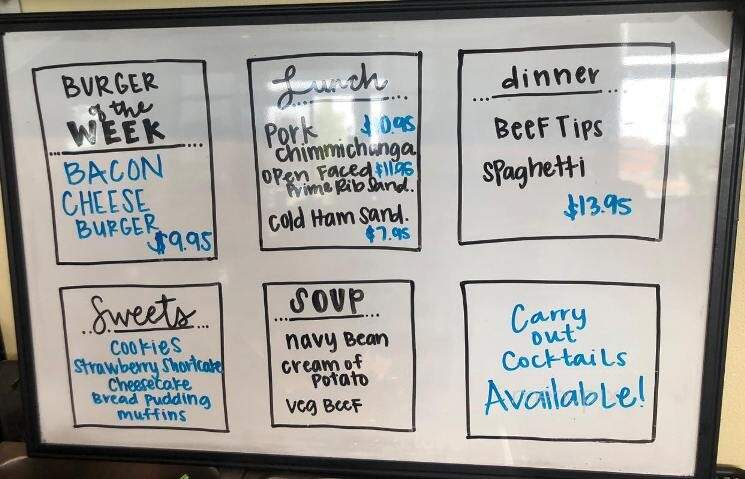 BURGER
of the
WEEK
BACON
CHEESE
BURGER
$9.95
Lunch
Pork $10.95
Chimmichanga
Open Faced $11.95
Prime Rib Sand.
Cold Ham Sand.
$7.95
dinner
Beef Tips
Spaghetti
$13.95
Sweets
Cookies
Strawberry Shortcake
Cheesecake
Bread Pudding
muffins
SOUP
navy Bean
cream of
Potato
Veg Beef
Carry
out
Cocktails
Available!